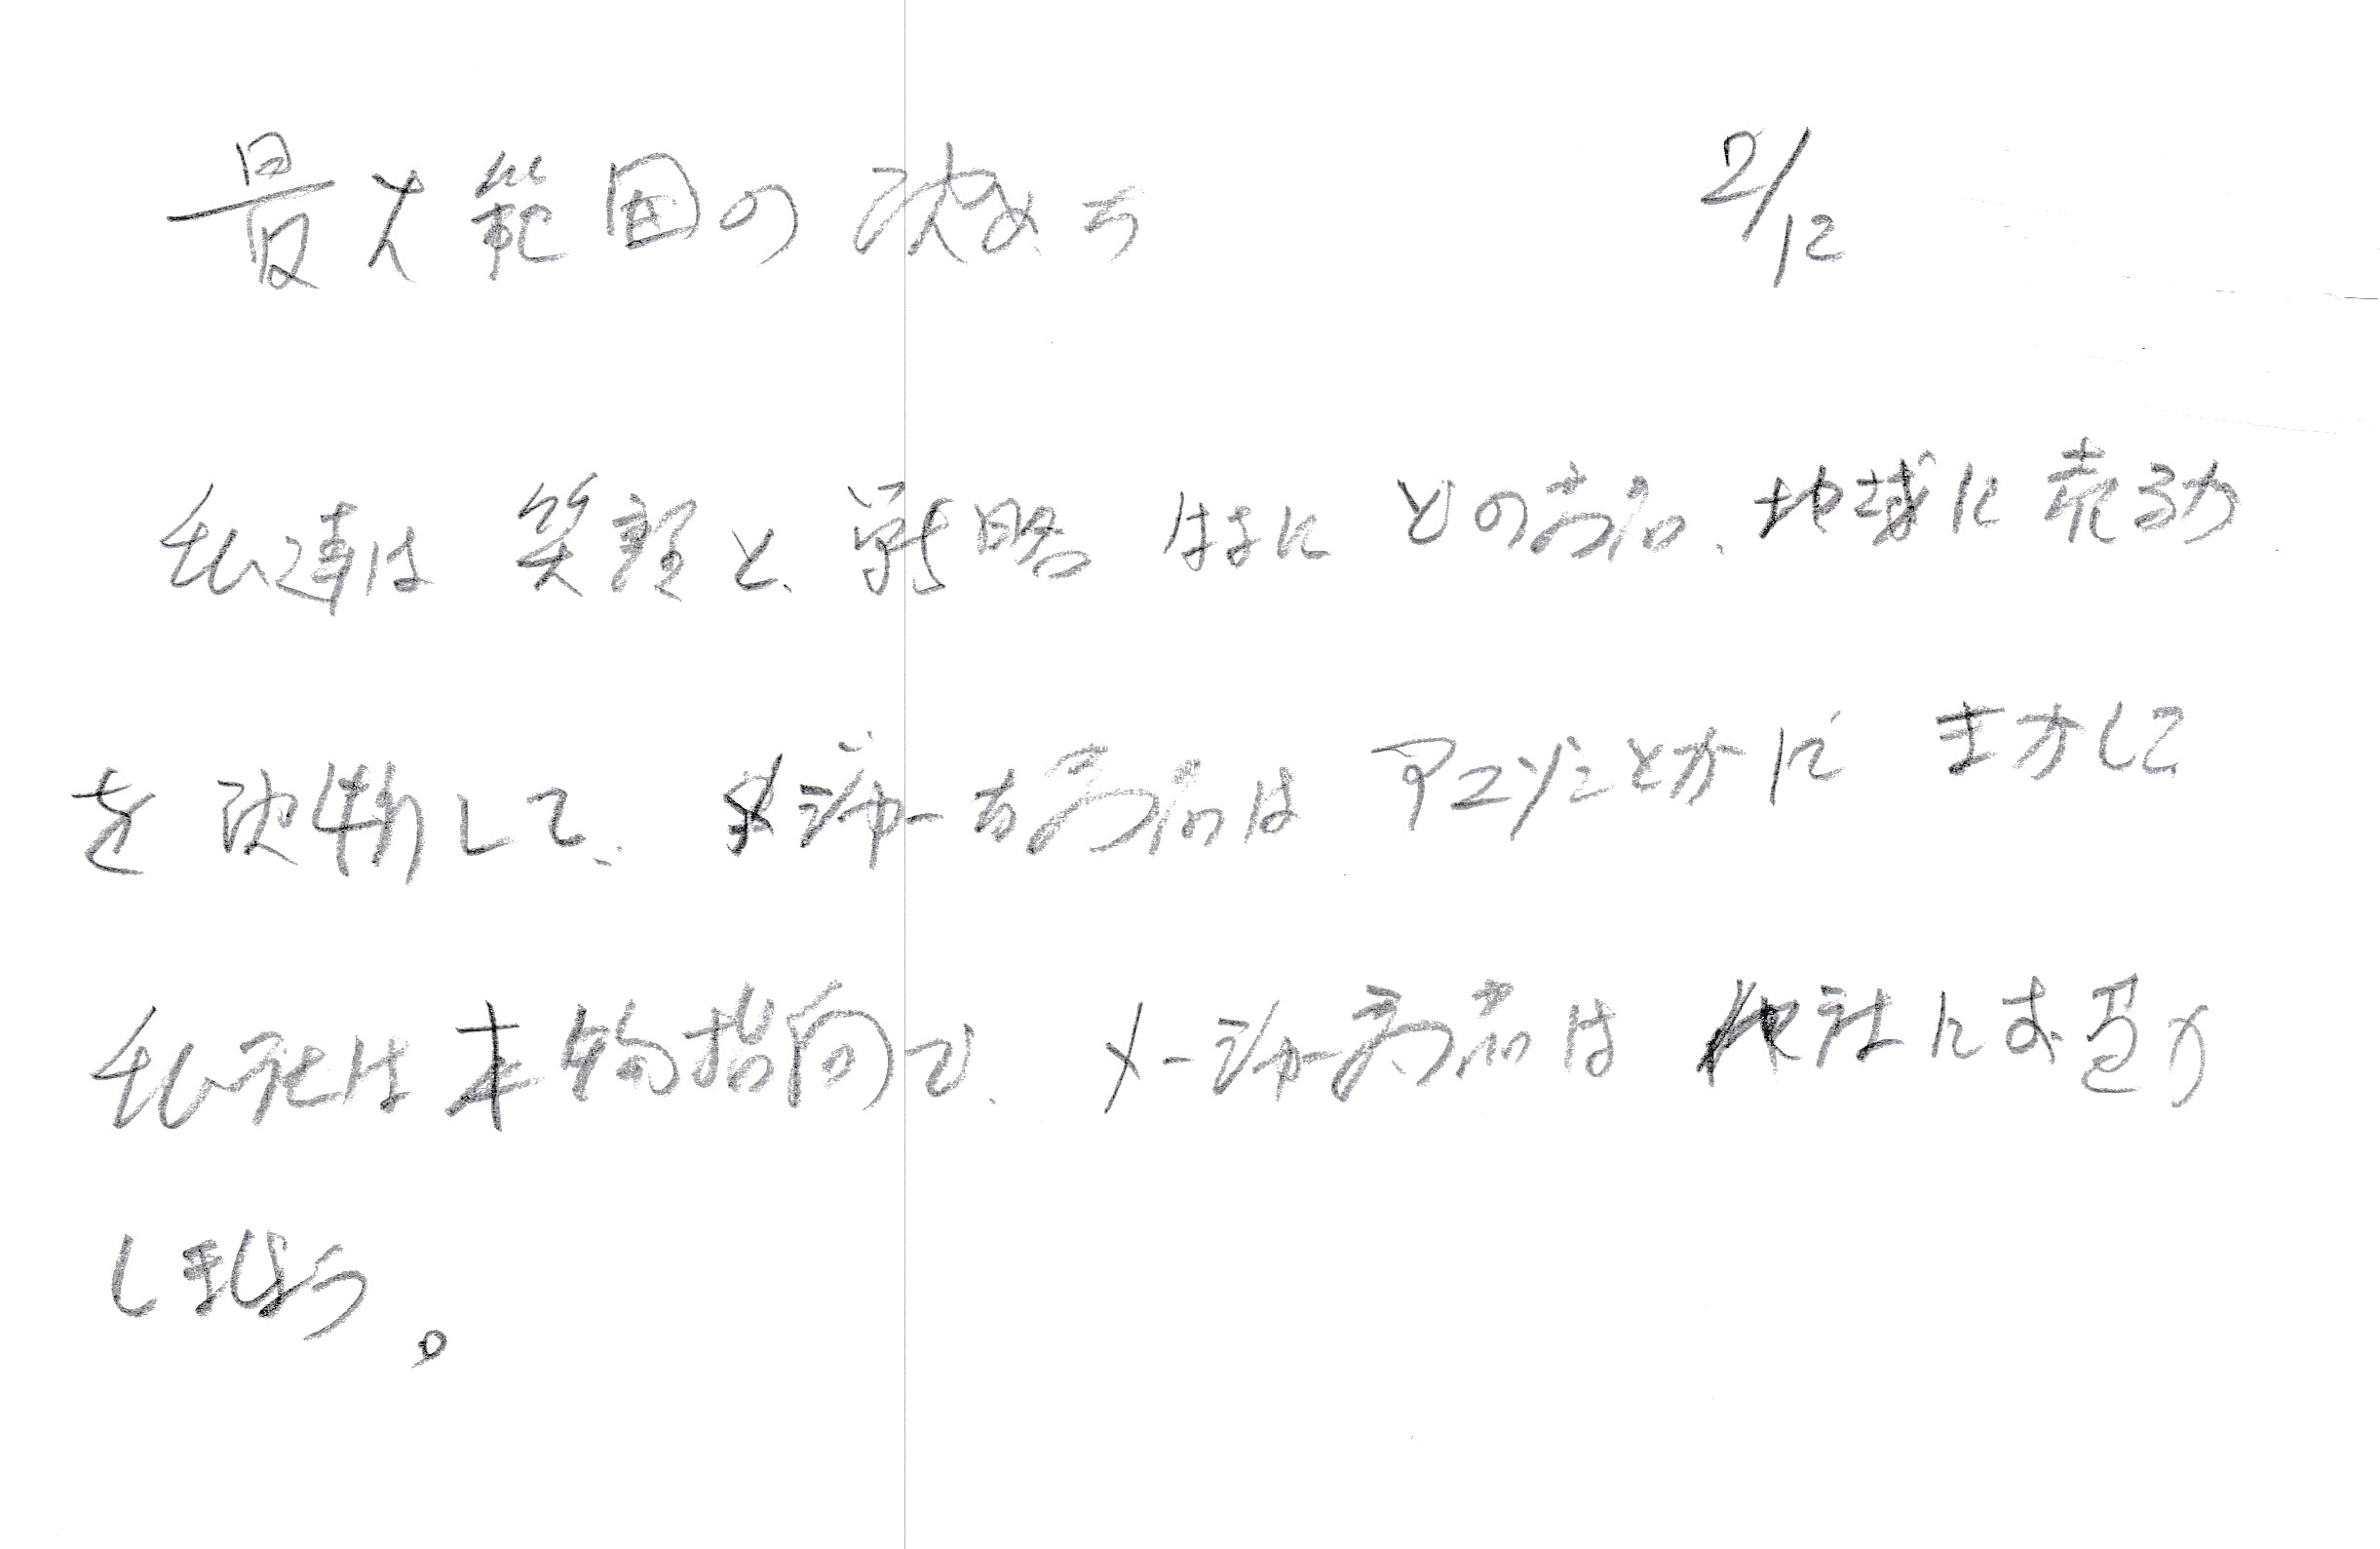 最大範囲の決め方 2/12
私達は 笑顔と、戦略 はなに どの商品、地域に売るか
を決断して、メジャーな商品は アマゾンとかに まかして
私社は本物指向で、メージャー商品は 他社にお送り
しましょう。